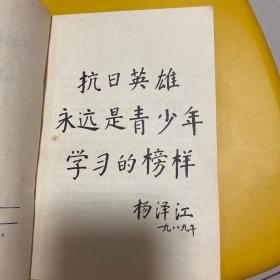 抗日英雄
永远是青少年
学习的榜样
杨泽江
一九八九年